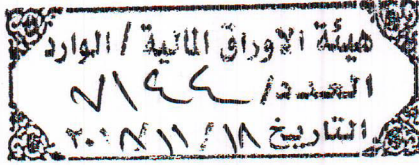 هيئة الاوراق المالية / الوارد
العدد/ ٧١٤٤
التاريخ ١٨ / ١١ / ٢٠١٨